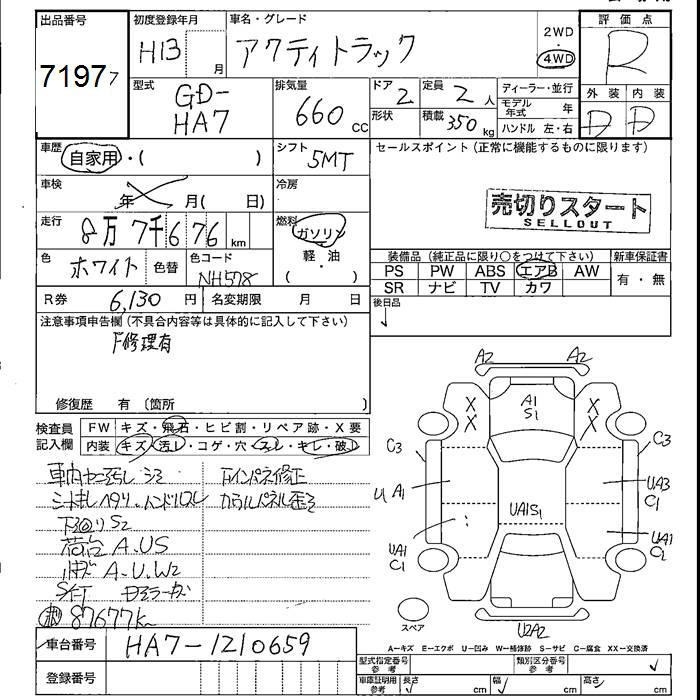 出品番号 初度登録年月 車名・グレード 2WD 評価点
71977 H13 月 アクティトラック 4WD R
型式 排気量 ドア 定員 ディーラー・並行 外装 内装
GD-HA7 660cc 2 2人 モデル年式 年 D D
形状 積載 350kg ハンドル 左・右
車歴 自家用・( ) シフト 5MT セールスポイント(正常に機能するものに限ります)
車検 年 月( 日) 冷房
売切りスタート
SELLOUT
走行 8万7千676 km 燃料 ガソリン
軽・油
( )
色 ホワイト 色替 色コード NH578
装備品(純正品に限り○をつけて下さい) 新車保証書
PS PW ABS エアB AW 有・無
SR ナビ TV カワ
R券 6,130円 名変期限 月 日 後日品
注意事項申告欄(不具合内容等は具体的に記入して下さい)
F修理有
修復歴 有(箇所 )
検査員記入欄 FW キズ・飛石・ヒビ割・リペア跡・X要
内装 キズ・汚レ・コゲ・穴・スレ・キレ・破レ
下回りS2
荷台A.US
A.U.W2
87677k
車台番号 HA7-1210659
登録番号
A2 A2
A1
S1
X X
X X
C3 C3
U A1 UA3
C1
UA1S1
UA1
C1
UA1
C2
スペア
U2A2
A―キズ E―エクボ U―凹み W―補修跡 S―サビ C―腐食 XX―交換済
型式指定番号 参考 類別区分番号 参考
車庫証明用 参考 長さ cm 幅 cm 高さ cm